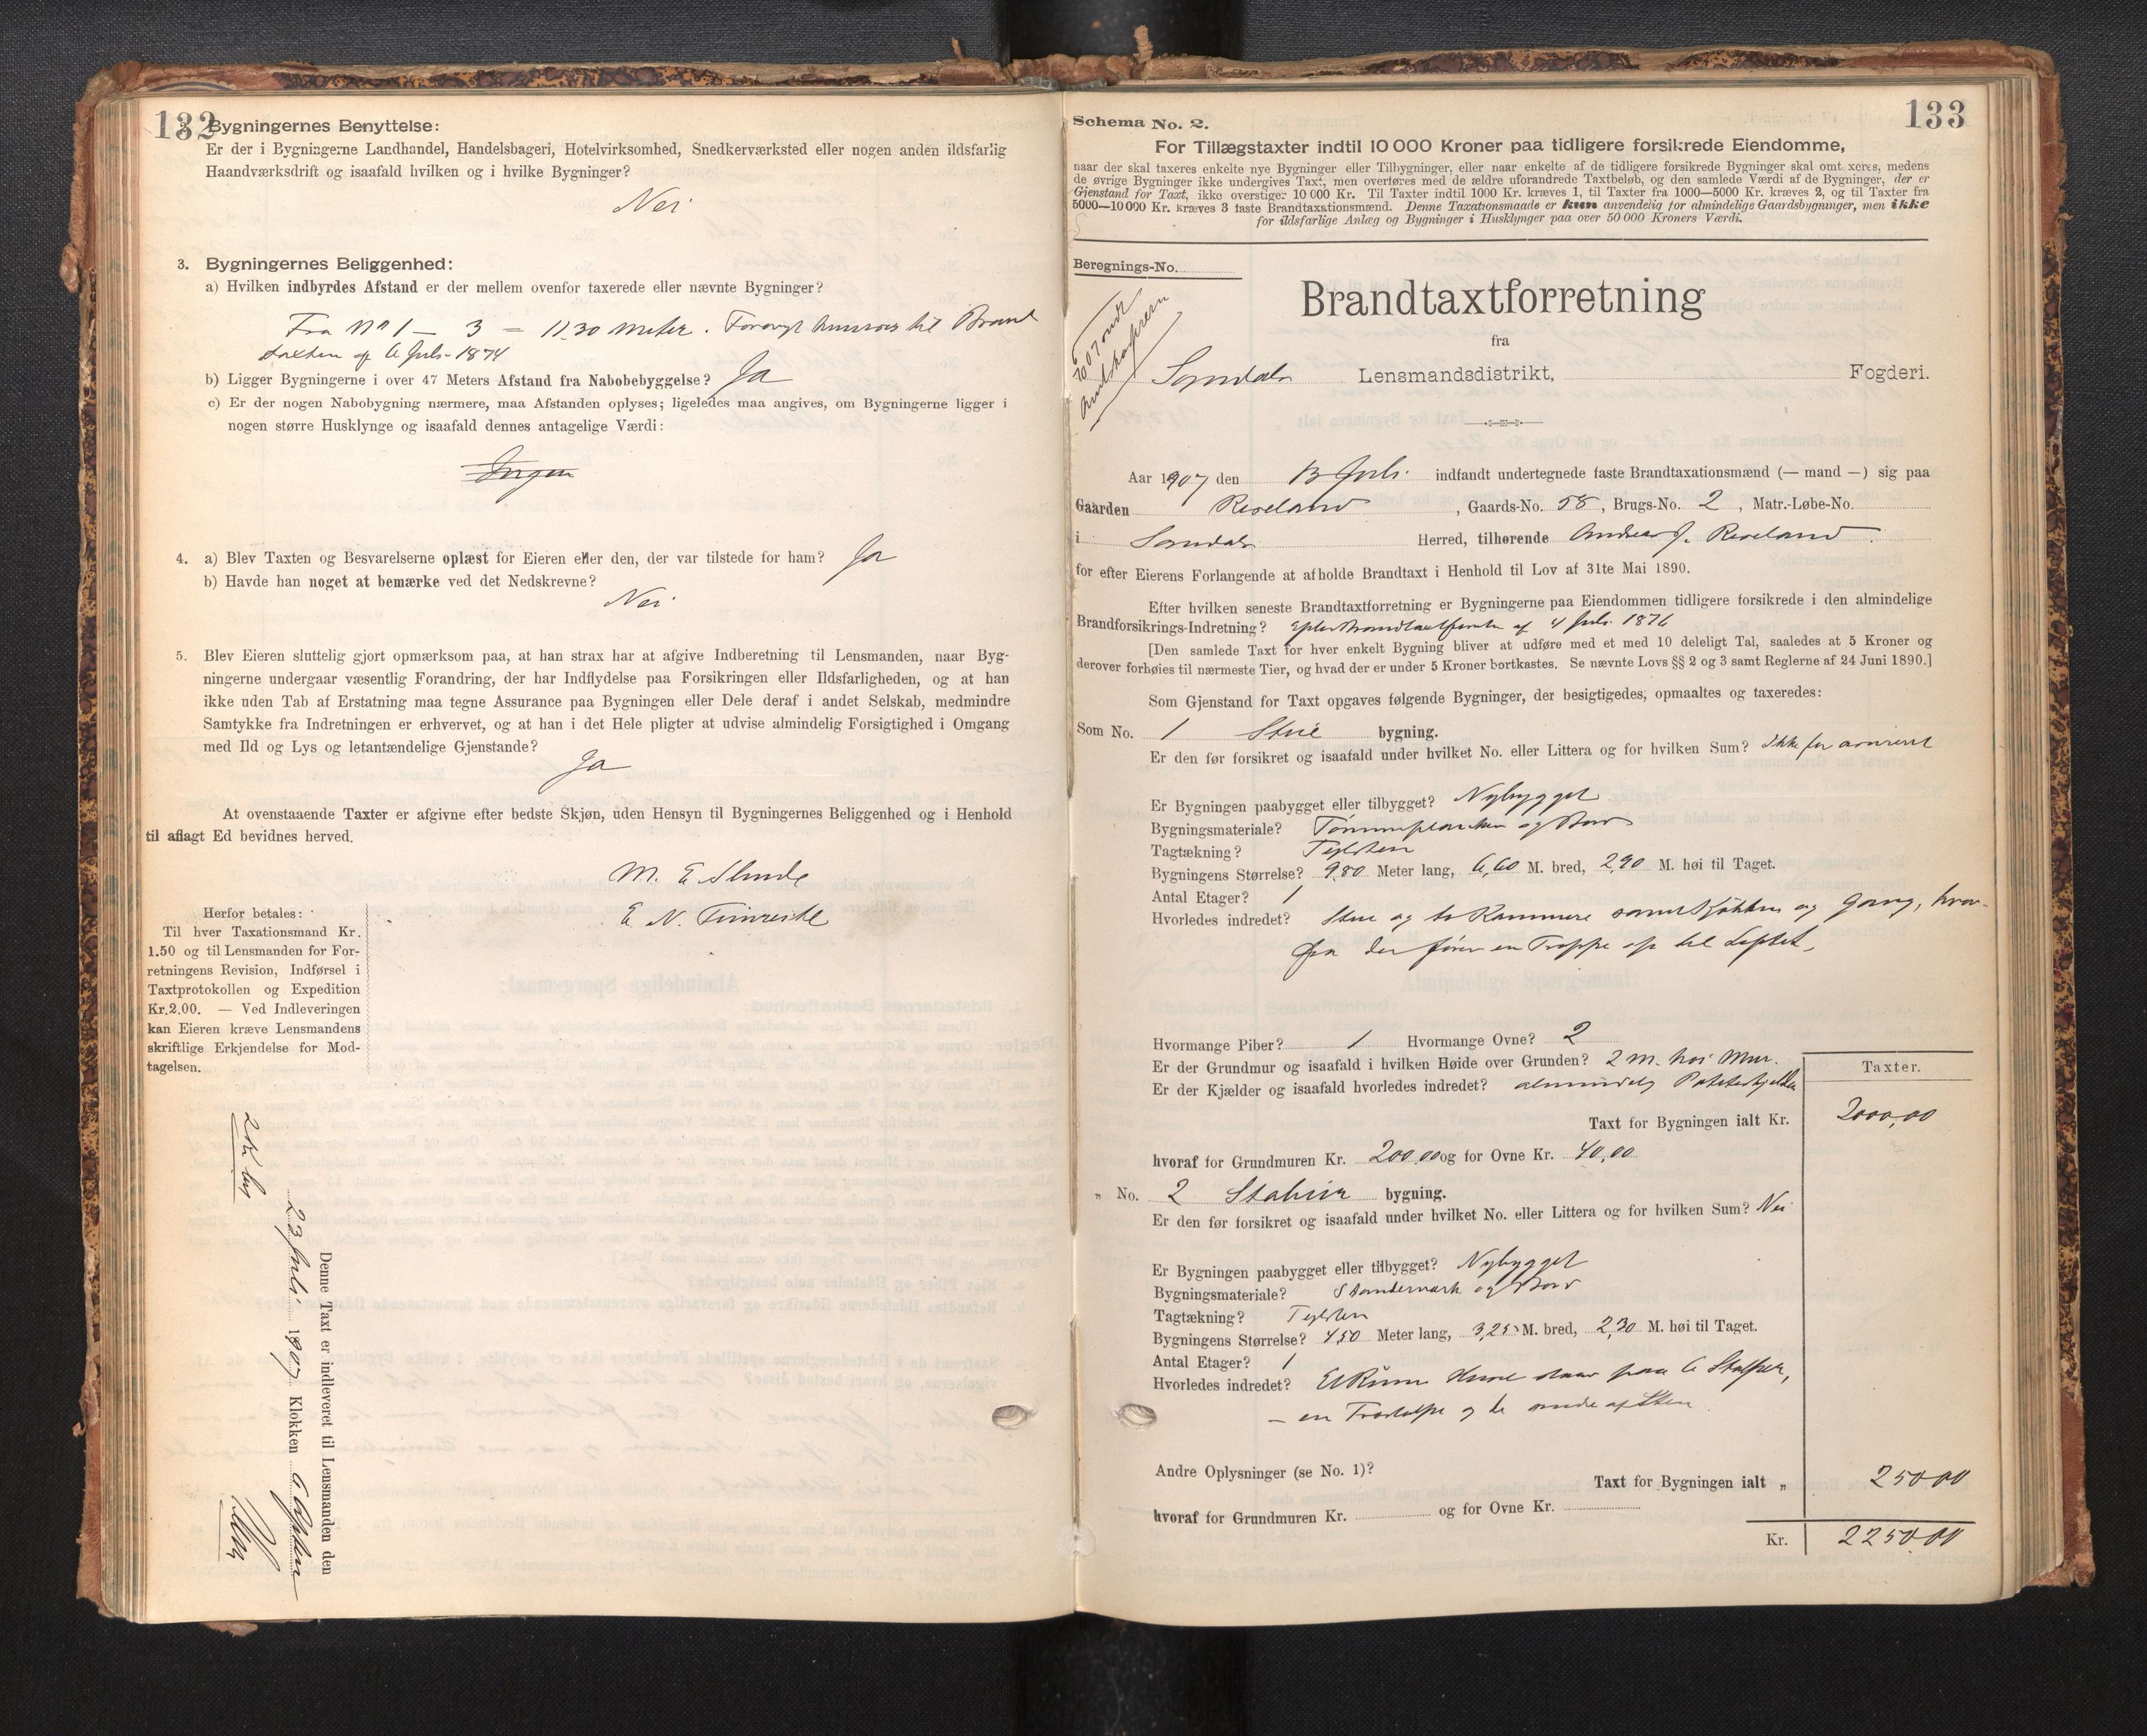 132
2. Bygningernes Benyttelse:
Er der i Bygningerne Landhandel, Handelsbageri, Hotelvirksomhed, Snedkerværksted eller nogen anden ildsfarlig
Haandværksdrift og isaafald hvilken og i hvilke Bygninger?
Nei
3. Bygningernes Beliggenhed:
a) Hvilken indbyrdes Afstand er der mellem ovenfor taxerede eller nævnte Bygninger?
Fra No 1 – 3 = 11.30 meter. Forøvrigt henvises til Brand
taxten af 6 Juli 1874
b) Ligger Bygningerne i over 47 Meters Afstand fra Nabobebyggelse? Ja
c) Er der nogen Nabobygning nærmere, maa Afstanden oplyses; ligeledes maa angives, om Bygningerne ligger i
nogen større Husklynge og isaafald dennes antagelige Værdi:
Ingen
4. a) Blev Taxten og Besvarelserne oplæst for Eieren eller den, der var tilstede for ham? Ja
b) Havde han noget at bemærke ved det Nedskrevne?
Nei
5. Blev Eieren sluttelig gjort opmærksom paa, at han strax har at afgive Indberetning til Lensmanden, naar Byg-
ningerne undergaar væsentlig Forandring, der har Indflydelse paa Forsikringen eller Ildsfarligheden, og at han
ikke uden Tab af Erstatning maa tegne Assurance paa Bygningen eller Dele deraf i andet Selskab, medmindre
Samtykke fra Indretningen er erhvervet, og at han i det Hele pligter at udvise almindelig Forsigtighed i Omgang
med Ild og Lys og letantændelige Gjenstande?
Ja
At ovenstaaende Taxter er afgivne efter bedste Skjøn, uden Hensyn til Bygningernes Beliggenhed og i Henhold
til aflagt Ed bevidnes herved.
M. E.
E. N.
Herfor betales:
Til hver Taxationsmand Kr.
1.50 og til Lensmanden for For-
retningens Revision, Indførsel i
Taxtprotokollen og Expedition
Kr.2.00. — Ved Indleveringen
kan Eieren kræve Lensmandens
skriftlige Erkjendelse for Mod-
tagelsen.
2 Kr
Denne Taxt er indleveret til Lensmanden den
23 Juli 1907 Klokken 6
133
Schema No. 2.
For Tillægstaxter indtil 10 000 Kroner paa tidligere forsikrede Eiendomme,
naar der skal taxeres enkelte nye Bygninger eller Tilbygninger, eller naar enkelte af de tidligere forsikrede Bygninger skal omtaxeres, medens
de øvrige Bygninger ikke undergives Taxt, men overføres med de ældre uforandrede Taxtbeløb, og den samlede Værdi af de Bygninger, der er
Gjenstand for Taxt, ikke overstiger 10 000 Kr. Til Taxter indtil 1000 Kr. kræves 1, til Taxter fra 1000—5000 Kr. kræves 2, og til Taxter fra
5000—10 000 Kr. kræves 3 faste Brandtaxationsmænd. Denne Taxationsmaade er kun anvendelig for almindelige Gaardsbygninger, men ikke
for ildsfarlige Anlæg og Bygninger i Husklynger paa over 50 000 Kroners Værdi.
Beregnings-No.
Brandtaxtforretning
fra
Lensmandsdistrikt, Fogderi.
Aar 1907 den 13 Juli indfandt undertegnede faste Brandtaxationsmænd (— mand —) sig paa
Gaarden Roseland, Gaards-No. 58, Brugs-No. 2, Matr.-Løbe-No.
i Herred, tilhørende Andreas J. Roseland
for efter Eierens Forlangende at afholde Brandtaxt i Henhold til Lov af 31te Mai 1890.
Efter hvilken seneste Brandtaxtforretning er Bygningerne paa Eiendommen tidligere forsikrede i den almindelige
Brandforsikrings-Indretning? af 4 Juli 1876
[Den samlede Taxt for hver enkelt Bygning bliver at udføre med et med 10 deleligt Tal, saaledes at 5 Kroner og
derover forhøies til nærmeste Tier, og hvad der er under 5 Kroner bortkastes. Se nævnte Lovs §§ 2 og 3 samt Reglerne af 24 Juni 1890.]
Som Gjenstand for Taxt opgaves følgende Bygninger, der besigtigedes, opmaaltes og taxeredes:
Som No. 1 Stue bygning.
Er den før forsikret og isaafald under hvilket No. eller Littera og for hvilken Sum? Ikke før assureret
Er Bygningen paabygget eller tilbygget? Nybygget
Bygningsmateriale? Tømmerplanker og Bord
Tagtækning? Teglsten
Bygningens Størrelse? 9,80 Meter lang, 6,60 M. bred, 2,90 M. høi til Taget.
Antal Etager? 1
Hvorledes indredet? Stue og to Kammere samt Kjøkken og Gang, hvor-
fra der fører en Trappe op til Loftet.
Hvormange Piber? 1 Hvormange Ovne? 2
Er der Grundmur og isaafald i hvilken Høide over Grunden? 2 m. høi Mur.
Er der Kjælder og isaafald hvorledes indredet? almindelig Poteteskjelder
Taxter.
Taxt for Bygningen ialt Kr. 2000,00
hvoraf for Grundmuren Kr. 200.00 og for Ovne Kr. 40,00
" No. 2 Stabur bygning.
Er den før forsikret og isaafald under hvilket No. eller Littera og for hvilken Sum? Nei
Er Bygningen paabygget eller tilbygget? Nybygget
Bygningsmateriale? Standerværk og Bord
Tagtækning? Teglsten
Bygningens Størrelse? 4,50 Meter lang, 3,25 M. bred, 2,30 M. høi til Taget.
Antal Etager? 1
Hvorledes indredet? Et Rum Huset staar paa 6 Stolper,
Andre Oplysninger (se No. 1)?
Taxt for Bygningen ialt " 250.00
hvoraf for Grundmuren Kr. og for Ovne Kr.
Kr. 2250.00